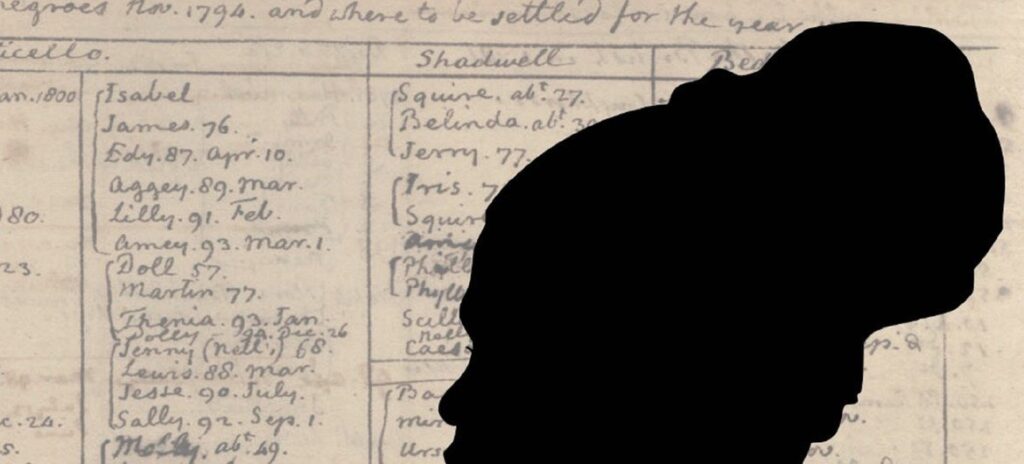 Nov. 1794. and where to be settled for the year
Shadwell
an. 1800
80.
23.
c. 24.
s.
Isabel
James. 76.
Edy. 87. Apr. 10.
Aggey. 89. Mar.
Lilly. 91. Feb.
Amey. 93. Mar. 1.
Doll 57.
Martin 77.
Thenia. 93. Jan
Dolly Dec. 26
Jenny (Ned's) 68.
Lewis. 88. Mar.
Jesse. 90. July.
Sally. 92. Sep. 1.
abt. 49.
Squire. abt. 27.
Belinda. abt.
Jerry. 77.
Iris. 7
Squir
Phill
Phyll
Scill
Caes
Ba
Urs